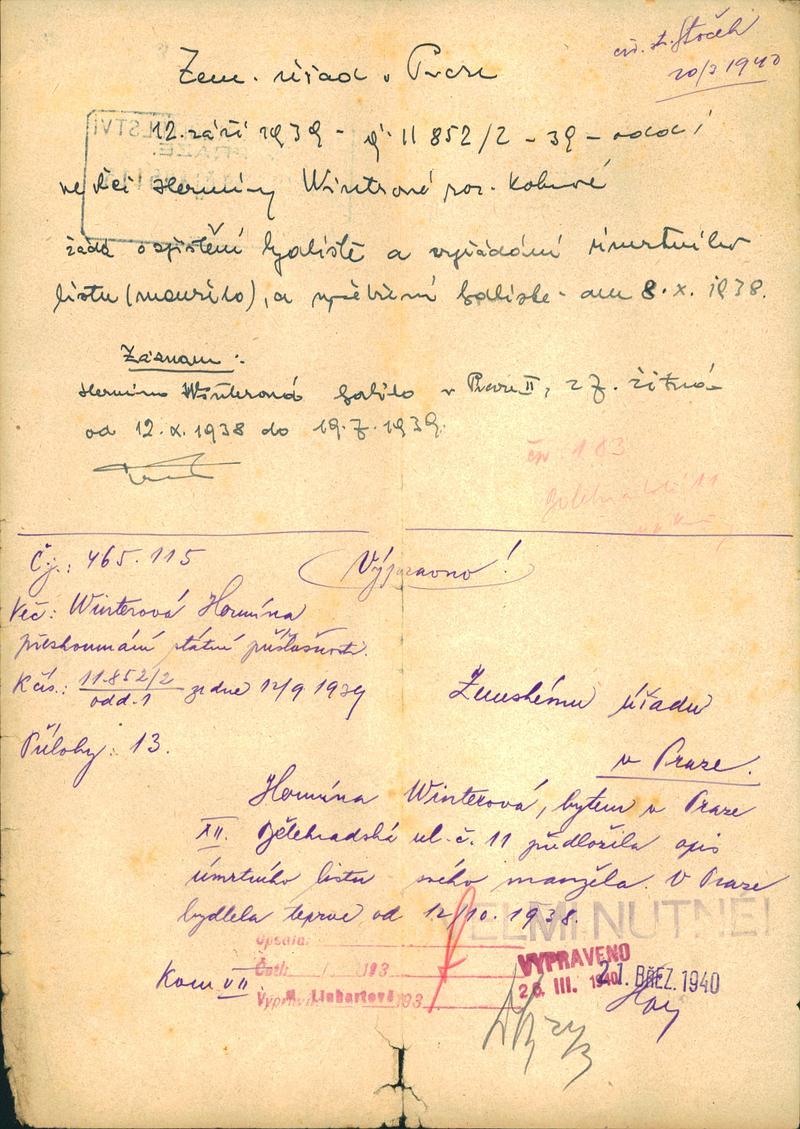 20/3 1940
Zem. úřad v Praze
12. září 1939 - č. 11852/2 - 39 - odd 1
ve věci Hermíny Winterové roz. Kohnové
žádá o zjištění bydliště a vyžádání úmrtního
listu (manžela), a bydliště - dne 8.X.1938.
Záznam:
Hermína Winterová bydlela v Praze II, 27. Žitná
od 12.X.1938 do
Č.j.: 465.115
Výpravno!
Věc: Winterová Hermína
přezkoumání státní příslušnosti.
K čís.: 11.852/2 odd. 1 ze dne 12/9 1939
Přílohy: 13.
Zemskému úřadu
v Praze.
Hermína Winterová, bytem v Praze
XII. Bělehradská ul. č. 11 předložila opis
úmrtního listu svého manžela. V Praze
bydlela teprve od 12/10. 1938.
VELMI NUTNÉ!
Opsala:
Četli 193
Vypraveno 193
M. Linhartová
VYPRAVENO
III. 1940
21. BŘEZ. 1940
Kom VII